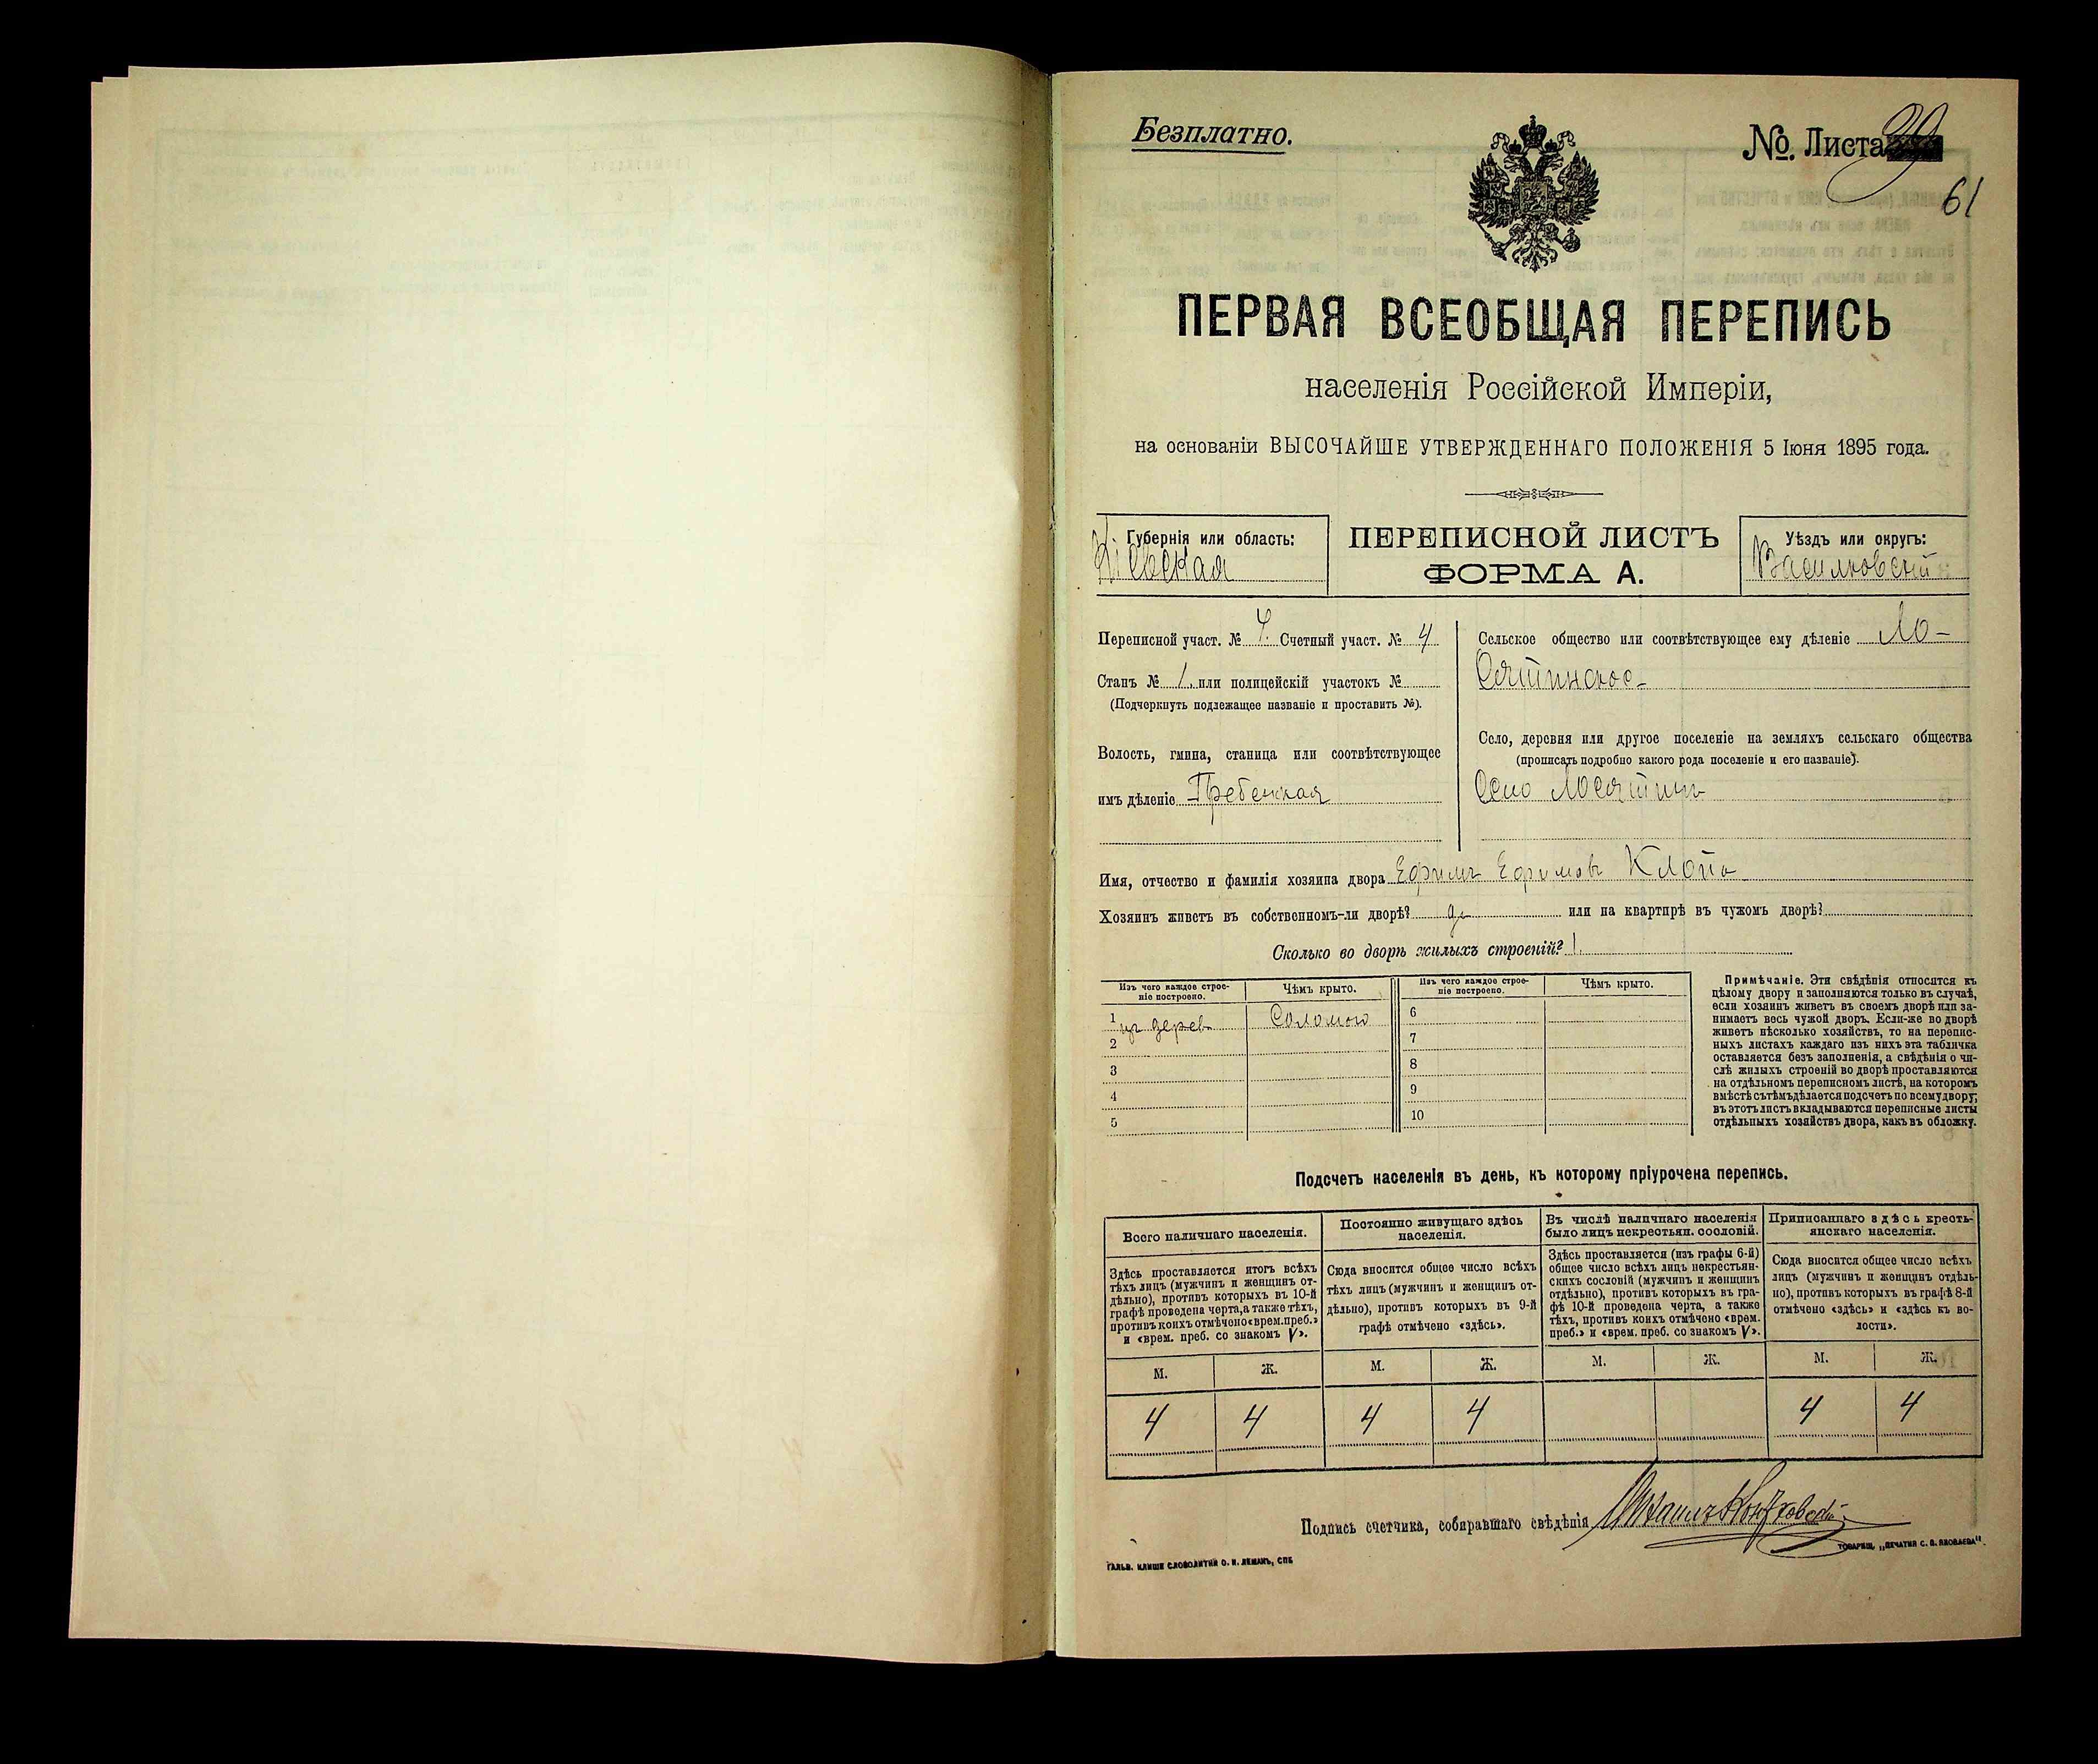 Безплатно.
№. Листа 39
61
ПЕРВАЯ ВСЕОБЩАЯ ПЕРЕПИСЬ
населенія Россійской Имперіи,
на основаніи ВЫСОЧАЙШЕ УТВЕРЖДЕННАГО ПОЛОЖЕНІЯ 5 Іюня 1895 года.
Губернія или область:
Кіевская
ПЕРЕПИСНОЙ ЛИСТЪ
ФОРМА А.
Уѣздъ или округъ:
Васильковскій
Переписной участ. № 4. Счетный участ. № 4
Станъ № 1. или полицейскій участокъ №
(Подчеркнуть подлежащее названіе и проставить №).
Волость, гмина, станица или соотвѣтствующее
имъ дѣленіе Гребенская
Сельское общество или соотвѣтствующее ему дѣленіе Ло-
сятинское
Село, деревня или другое поселеніе на земляхъ сельскаго общества
(прописать подробно какого рода поселеніе и его названіе).
Село Лосятинъ
Имя, отчество и фамилія хозяина двора Ефимъ Ефимовъ Клопъ
Хозяинъ живетъ въ собственномъ-ли дворѣ? да или на квартирѣ въ чужомъ дворѣ?
Сколько во дворѣ жилыхъ строеній? 1.
Изъ чего каждое строе-
ніе построено.
Чѣмъ крыто.
Изъ чего каждое строе-
ніе построено.
Чѣмъ крыто.
1 изъ дерев Соломою 6
2 7
3 8
4 9
5 10
Примѣчаніе. Эти свѣдѣнія относятся къ
цѣлому двору и заполняются только въ случаѣ,
если хозяинъ живетъ въ своемъ дворѣ или за-
нимаетъ весь чужой дворъ. Если-же во дворѣ
живетъ нѣсколько хозяйствъ, то на перепис-
ныхъ листахъ каждаго изъ нихъ эта табличка
оставляется безъ заполненія, а свѣдѣнія о чи-
слѣ жилыхъ строеній во дворѣ проставляются
на отдѣльномъ переписномъ листѣ, на которомъ
вмѣстѣ съ тѣмъ дѣлается подсчетъ по всему двору;
въ этотъ листъ вкладываются переписные листы
отдѣльныхъ хозяйствъ двора, какъ въ обложку.
Подсчетъ населенія въ день, къ которому пріурочена перепись.
Всего наличнаго населенія.
Здѣсь проставляется итогъ всѣхъ
тѣхъ лицъ (мужчинъ и женщинъ от-
дѣльно), противъ которыхъ въ 10-й
графѣ проведена черта, а также тѣхъ,
противъ коихъ отмѣчено «врем. преб.»
и «врем. преб. со знакомъ V».
Постоянно живущаго здѣсь
населенія.
Сюда вносится общее число всѣхъ
тѣхъ лицъ (мужчинъ и женщинъ от-
дѣльно), противъ которыхъ въ 9-й
графѣ отмѣчено «здѣсь».
Въ числѣ наличнаго населенія
было лицъ некрестьян. сословій.
Здѣсь проставляется (изъ графы 6-й)
общее число всѣхъ лицъ некрестьян-
скихъ сословій (мужчинъ и женщинъ
отдѣльно), противъ которыхъ въ гра-
фѣ 10-й проведена черта, а также
тѣхъ, противъ коихъ отмѣчено «врем.
преб.» и «врем. преб. со знакомъ V».
Приписаннаго здѣсь кресть-
янскаго населенія.
Сюда вносится общее число всѣхъ
лицъ (мужчинъ и женщинъ отдѣль-
но), противъ которыхъ въ графѣ 8-й
отмѣчено «здѣсь» и «здѣсь къ во-
лости».
М. Ж. М. Ж. М. Ж. М. Ж.
4 4 4 4 4 4
Подпись счетчика, собиравшаго свѣдѣнія
ГАЛЬВ. КЛИШЕ СЛОВОЛИТНИ О. И. ЛЕМАНЪ, СПБ
ТОВАРИЩ. „ПЕЧАТНЯ С. П. ЯКОВЛЕВА".